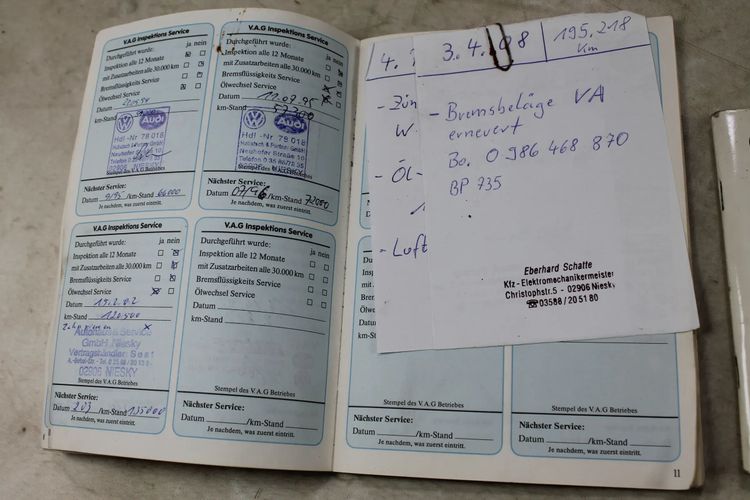 V.A.G Inspektions Service
Durchgeführt wurde: ja nein
Inspektion alle 12 Monate
mit Zusatzarbeiten alle 30.000 km
Bremsflüssigkeits Service
Ölwechsel Service
Datum
km-Stand
Audi
Hdl-Nr 78 018
Stempel des V.A.G Betriebes
Nächster Service:
Datum 9/95 /km-Stand 66000
Je nachdem, was zuerst eintritt.
V.A.G Inspektions Service
Durchgeführt wurde: ja nein
Inspektion alle 12 Monate
mit Zusatzarbeiten alle 30.000 km
Bremsflüssigkeits Service
Ölwechsel Service
Datum 11.07.95
km-Stand 57200
Audi
Hdl-Nr 78 018
Neuhofer Straße 10
Stempel des V.A.G Betriebes
Nächster Service:
Datum 07/96 /km-Stand 72000
Je nachdem, was zuerst eintritt.
V.A.G Inspektions Service
Durchgeführt wurde: ja nein
Inspektion alle 12 Monate
mit Zusatzarbeiten alle 30.000 km
Bremsflüssigkeits Service
Ölwechsel Service
Datum 15.2.02
km-Stand 120500
Zahnriemen x
Autohaus & Service
GmbH Niesky
Vertragshändler Seat
02906 NIESKY
Stempel des V.A.G Betriebes
Nächster Service:
Datum 2.03 /km-Stand 135000
Je nachdem, was zuerst eintritt.
V.A.G Inspektions Service
Durchgeführt wurde: ja nein
Inspektion alle 12 Monate
mit Zusatzarbeiten alle 30.000 km
Bremsflüssigkeits Service
Ölwechsel Service
Datum
km-Stand
Stempel des V.A.G Betriebes
Nächster Service:
Datum /km-Stand
Je nachdem, was zuerst eintritt.
4.
- Zün
W
- Öl
- Luft
3. 4. 08 195.218
km
- Bremsbeläge VA
erneuert
Bo. 0 986 468 870
BP 735
Eberhard Schatte
Kfz-Elektromechanikermeister
Christophstr. 5 - 02906 Niesky
☎ 03588 / 20 51 80
Stempel des V.A.G Betriebes
Nächster Service:
Datum /km-Stand
Je nachdem, was zuerst eintritt.
Stempel des V.A.G Betriebes
Nächster Service:
Datum /km-Stand
Je nachdem, was zuerst eintritt.
11